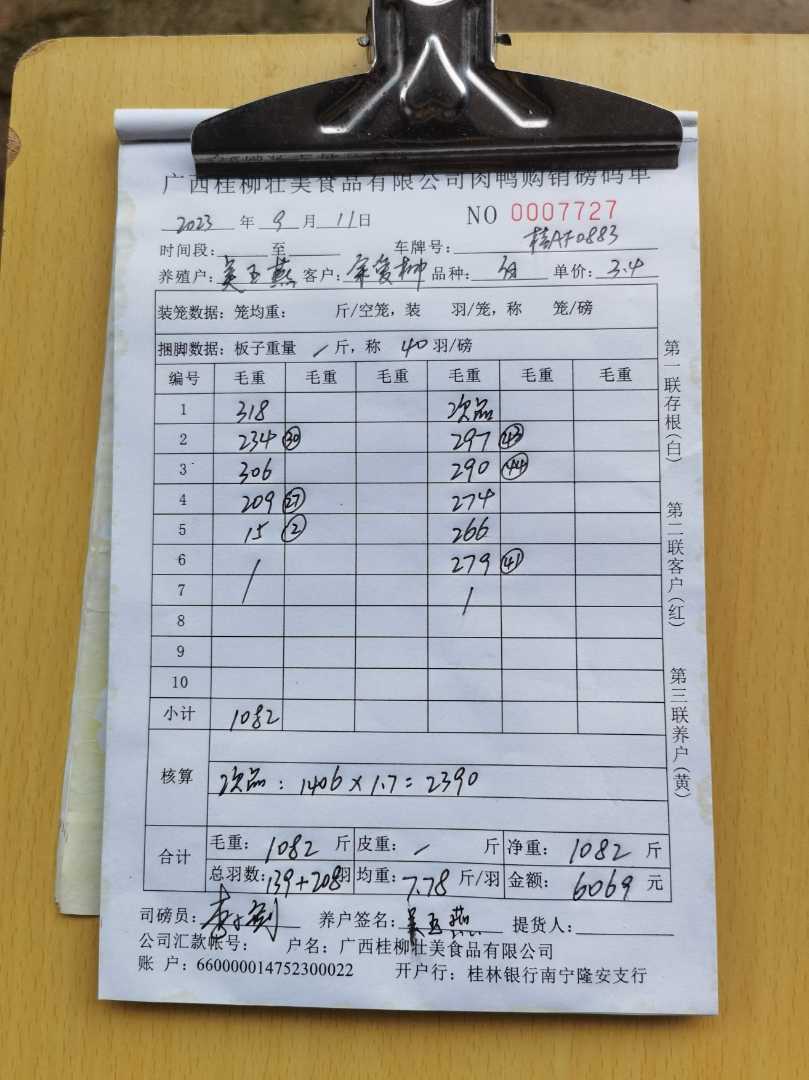 广西桂柳壮美食品有限公司肉鸭购销磅码单
2023 年 9 月 11 日 NO 0007727
时间段: 至 车牌号: 桂AF0883
养殖户: 吴玉燕 客户: 品种: 单价: 3.4
装笼数据: 笼均重: 斤/空笼, 装 羽/笼, 称 笼/磅
捆脚数据: 板子重量 / 斤, 称 40 羽/磅
编号 毛重 毛重 毛重 毛重 毛重 毛重
1 318 次品
2 234 ㉚ 297 ㊸
3 306 290 ㊹
4 209 ㉗ 274
5 15 ② 266
6 / 279 ㊶
7 /
8
9
10
小计 1082
核算 次品: 1406 × 1.7 = 2390
合计 毛重: 1082 斤 皮重: / 斤 净重: 1082 斤
总羽数: 139+208 羽 均重: 7.78 斤/羽 金额: 6069 元
司磅员: 养户签名: 吴玉燕 提货人:
公司汇款帐号: 户名: 广西桂柳壮美食品有限公司
账 户: 660000014752300022 开户行: 桂林银行南宁隆安支行
第一联存根(白)
第二联客户(红)
第三联养户(黄)